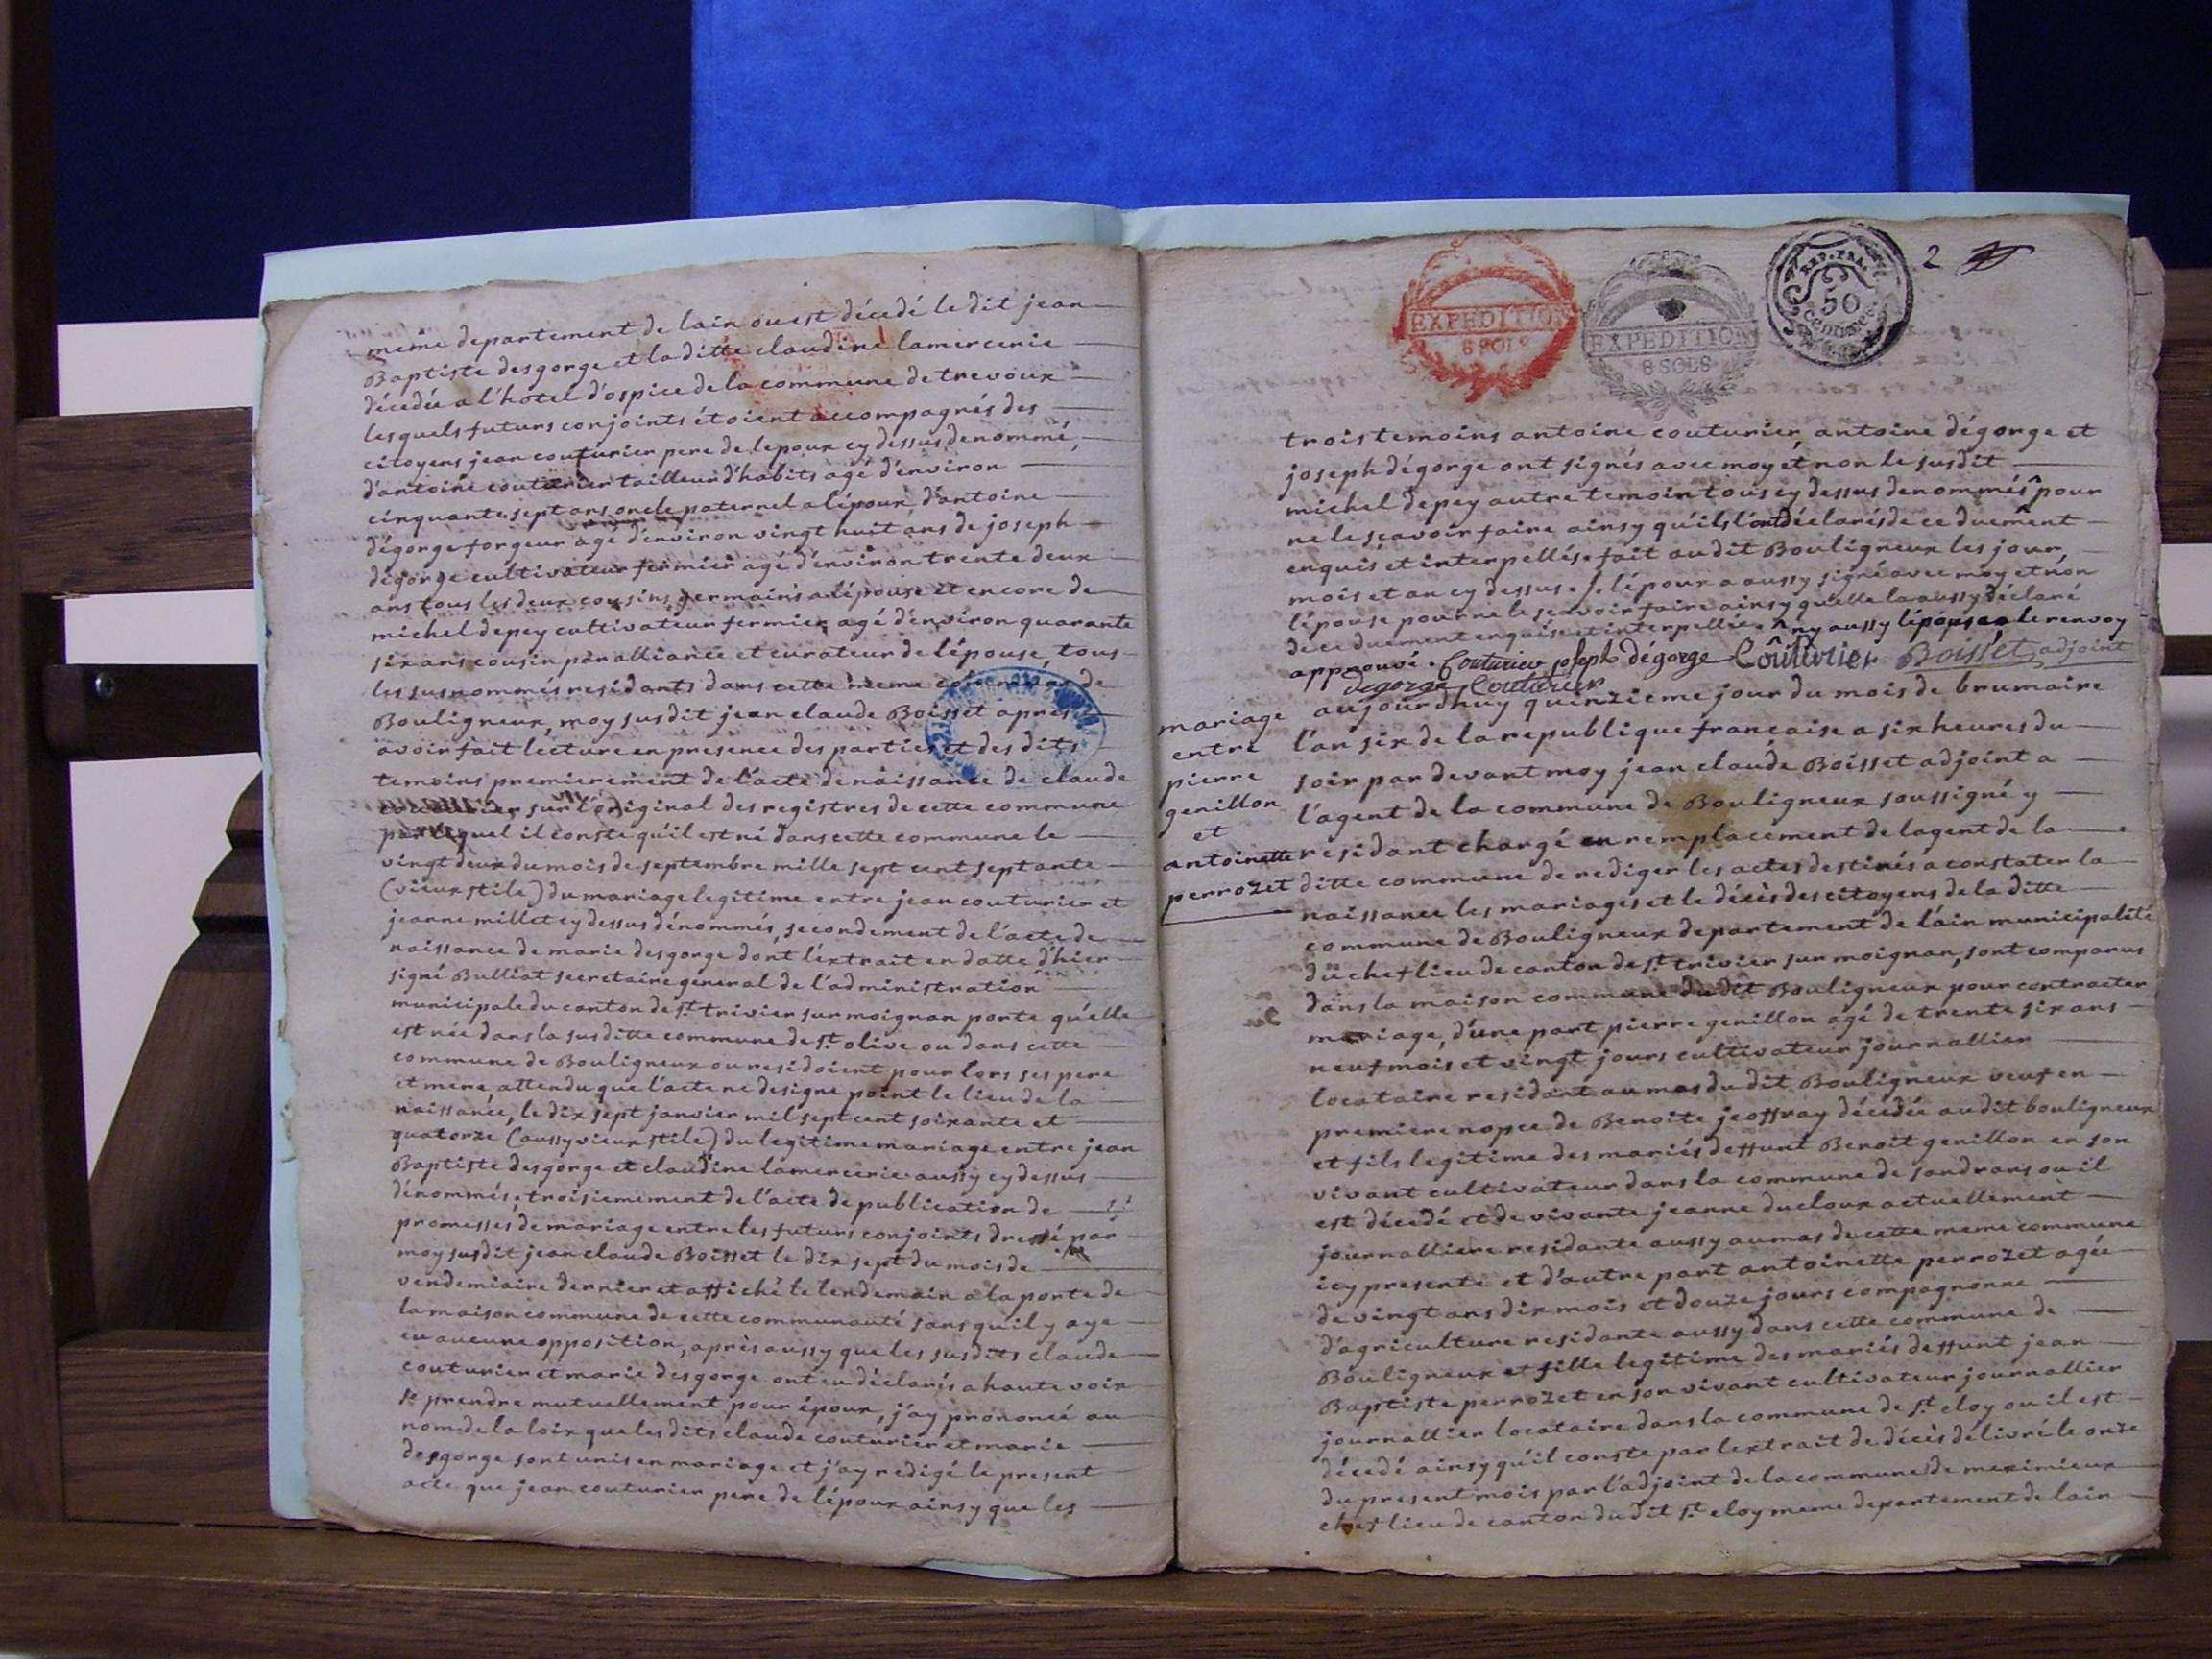 meme departement de lain ou est décedé le dit jean
Baptiste desgorge et la ditte claudine lamercerie
décedée a l'hotel d'ospice de la commune de trevoux
lesquels futurs conjoints étoient accompagnés des
citoyens jean couturier pere de lepoux cy dessus denommé,
d'antoine couturier tailleur d'habits agé d'environ
cinquante sept ans oncle paternel a lépoux, d'antoine
dégorge forgeur agé d'environ vingt huit ans de joseph
dégorge cultivateur fermier agé d'environ trente deux
ans tous les deux cousins germains a lépouse et encore de
michel depey cultivateur fermier agé d'environ quarante
six ans cousin par alliance et curateur de l'épouse, tous
les susnommés residants dans cette meme commune de
Bouligneux, moy susdit jean claude Boisset après
avoir fait lécture en presence des parties et des dits
temoins premierement de l'acte de naissance de claude
couturier sur l'original des registres de cette commune
par lequel il conste qu'il est né dans cette commune le
vingt deux du mois de septembre mille sept cent septante
(vieux stile) du mariage legitime entre jean couturier et
jeanne millet cy dessus dénommés, secondement de l'acte de
naissance de marie desgorge dont l'éxtrait en datte d'hier
signé Bulliat secretaire géneral de l'administration
municipale du canton de st trivier sur moignan porte qu'elle
est née dans la susditte commune de st olive ou dans cette
commune de Bouligneux ou residoient pour lors ses pere
et mere, attendu que l'acte ne designe point le lieu de la
naissance, le dix sept janvier mil sept cent soixante et
quatorze (aussy vieux stile) du legitime mariage entre jean
Baptiste desgorge et claudine lamercerie aussy cy dessus
dénommés, troisiemement de l'acte de publication de
promesses de mariage entre les futurs conjoints dressé par
moy susdit jean claude Boisset le dix sept du mois de
vendemiaire dernier et affiché le lendemain a la porte de
la maison commune de cette communauté sans qu'il y aye
eu aucune opposition, après aussy que les susdits claude
couturier et marie desgorge ont eu déclarés a haute voix
se prendre mutuellement pour époux, j'ay prononcé au
nom de la loix que les dits claude couturier et marie
desgorge sont unis en mariage et j'ay redigé le present
acte que jean couturier pere de lépoux ainsy que les
EXPEDITION
8 SOLS
EXPEDITION
8 SOLS
REP. FRA.
50
centimes
2
trois temoins antoine couturier, antoine dégorge et
joseph dégorge ont signés avec moy et non le susdit
michel depey autre temoin tous cy dessus denommés ^pour
ne le sçavoir faire ainsy qu'ils l'ont déclarés de ce duement
enquis et interpellés fait au dit Bouligneux les jour,
mois et an cy dessus ./. lépoux a aussy signé avec moy et non
lépouse pour ne le sçavoir faire ainsy qu'elle la aussy déclaré
de ce duement enquise et interpellée. ^ ny aussy lépouse le renvoy
approuvé. Couturier joseph dégorge Coûturier Boisset adjoint
degorge Couturier
mariage
entre
pierre
genillon
et
antoinette
perrozet
aujourdhuy quinzieme jour du mois de brumaire
l'an six de la republique francaise a six heures du
soir par devant moy jean claude Boisset adjoint a
l'agent de la commune de Bouligneux soussigné y
residant chargé en remplacement de lagent de la
ditte commune de rediger les actes destinés a constater la
naissance les mariages et le décès des citoyens de la ditte
commune de Bouligneux departement de l'ain municipalité
du chef lieu de canton de st trivier sur moignan, sont comparus
dans la maison commune du dit Bouligneux pour contracter
mariage, d'une part pierre genillon agé de trente six ans
neuf mois et vingt jours cultivateur journallier
locataire residant au mas du dit Bouligneux veuf en
premiere nopce de Benoite jeoffray décedée au dit bouligneux
et fils legitime des mariés deffunt Benoit genillon en son
vivant cultivateur dans la commune de sandrans ou il
est décedé et de vivante jeanne ducloux actuellement
journalliere residante aussy au mas de cette meme commune
icy presente et d'autre part antoinette perrozet agée
de vingt ans dix mois et douze jours compagnonne
d'agriculture residante aussy dans cette commune de
Bouligneux et fille legitime des mariés deffunt jean
Baptiste perrozet en son vivant cultivateur journallier
journallier locataire dans la commune de st eloy ou il est
décedé ainsy qu'il conste par lextrait de décès délivré le onze
du present mois par l'adjoint de la commune de meximieux
chef lieu de canton du dit st eloy meme departement de lain